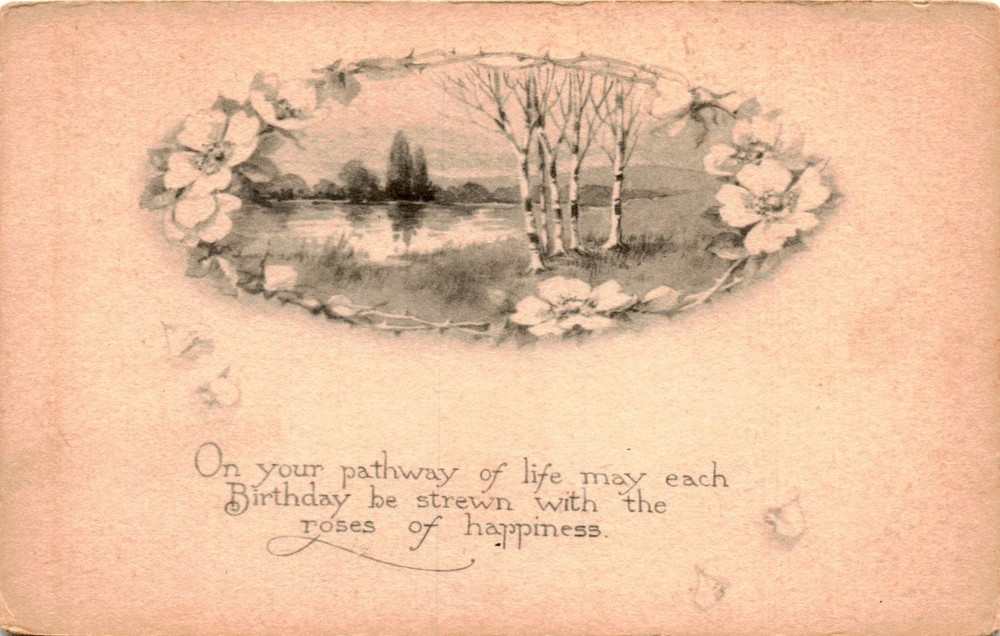 On your pathway of life may each
Birthday be strewn with the
roses of happiness.